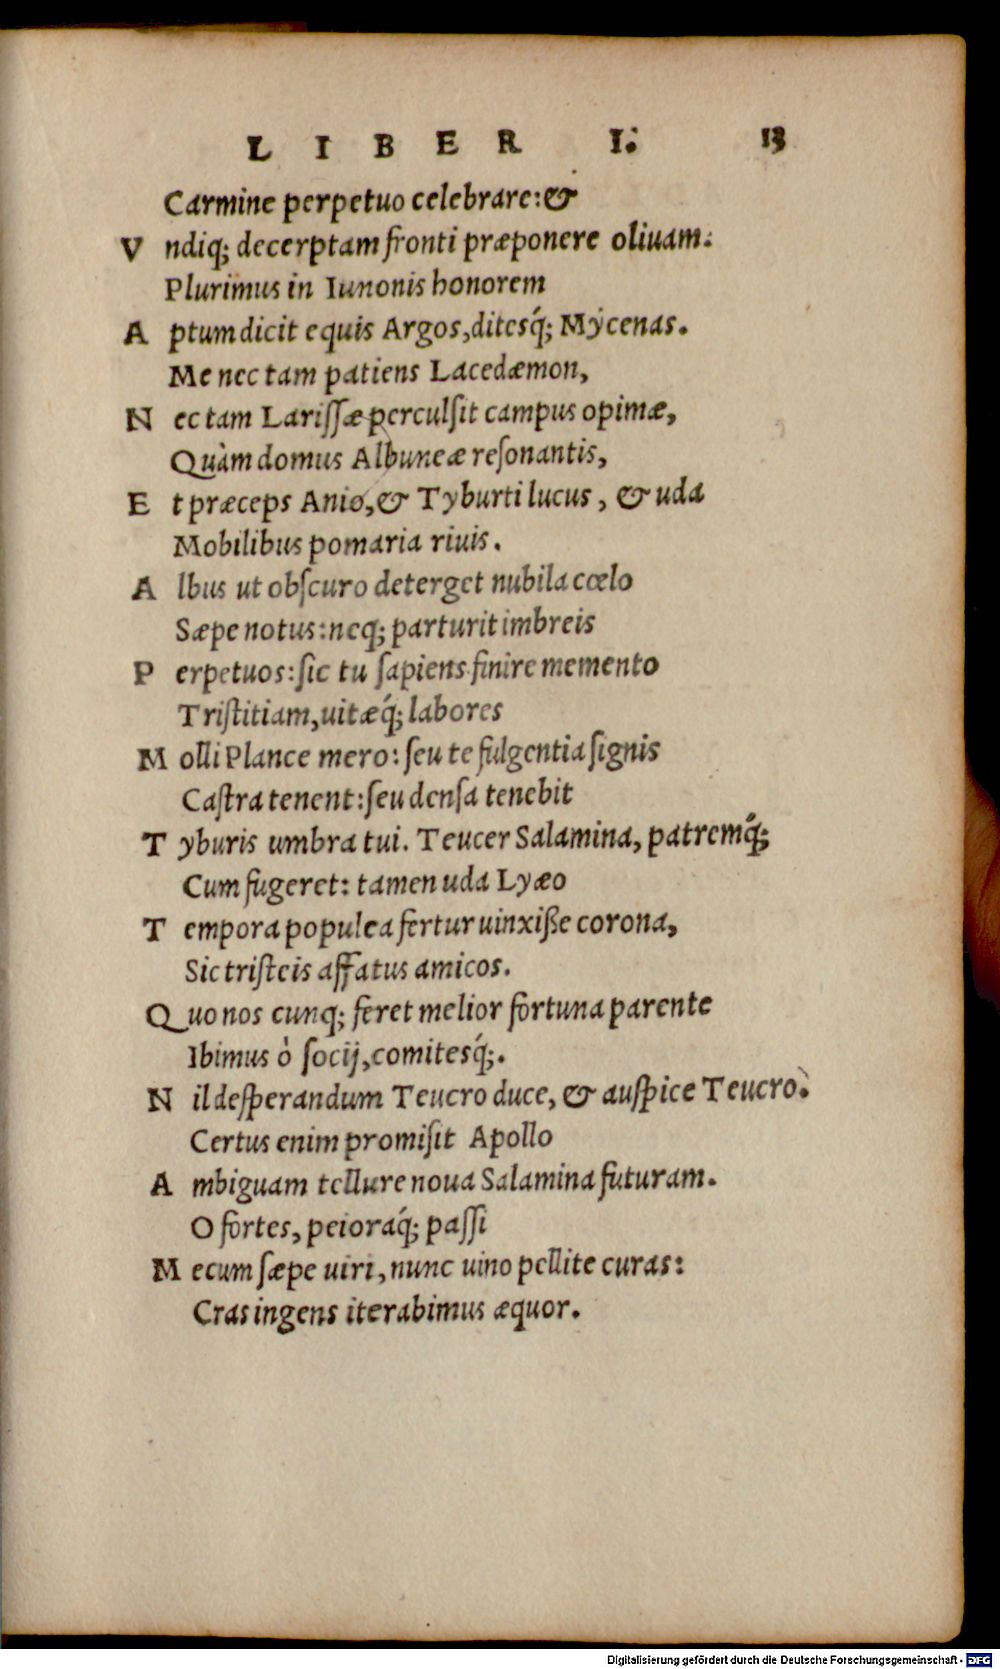 LIBER I. 13
Carmine perpetuo celebrare: &
Vndiq; decerptam fronti præponere oliuam.
Plurimus in Iunonis honorem
Aptum dicit equis Argos, ditesq́; Mycenas.
Me nec tam patiens Lacedæmon,
Nec tam Larissæ perculſit campus opimæ,
Quàm domus Albuneæ reſonantis,
Et præceps Anio, & Tyburti lucus, & uda
Mobilibus pomaria riuis.
Albus ut obſcuro deterget nubila cœlo
Sæpe notus: neq; parturit imbreis
Perpetuos: ſic tu ſapiens finire memento
Triſtitiam, uitæq́; labores
Molli Plance mero: ſeu te fulgentia ſignis
Caſtra tenent: ſeu denſa tenebit
Tyburis umbra tui. Teucer Salamina, patremq́;
Cum fugeret: tamen uda Lyæo
Tempora populea fertur uinxiſſe corona,
Sic triſteis affatus amicos.
Quo nos cunq; feret melior fortuna parente
Ibimus ò ſocij, comitesq́;.
Nil deſperandum Teucro duce, & auſpice Teucro.
Certus enim promiſit Apollo
Ambiguam tellure noua Salamina futuram.
O fortes, peioraq́; paſſi
Mecum ſæpe uiri, nunc uino pellite curas:
Cras ingens iterabimus æquor.
Digitalisierung gefördert durch die Deutsche Forschungsgemeinschaft - DFG